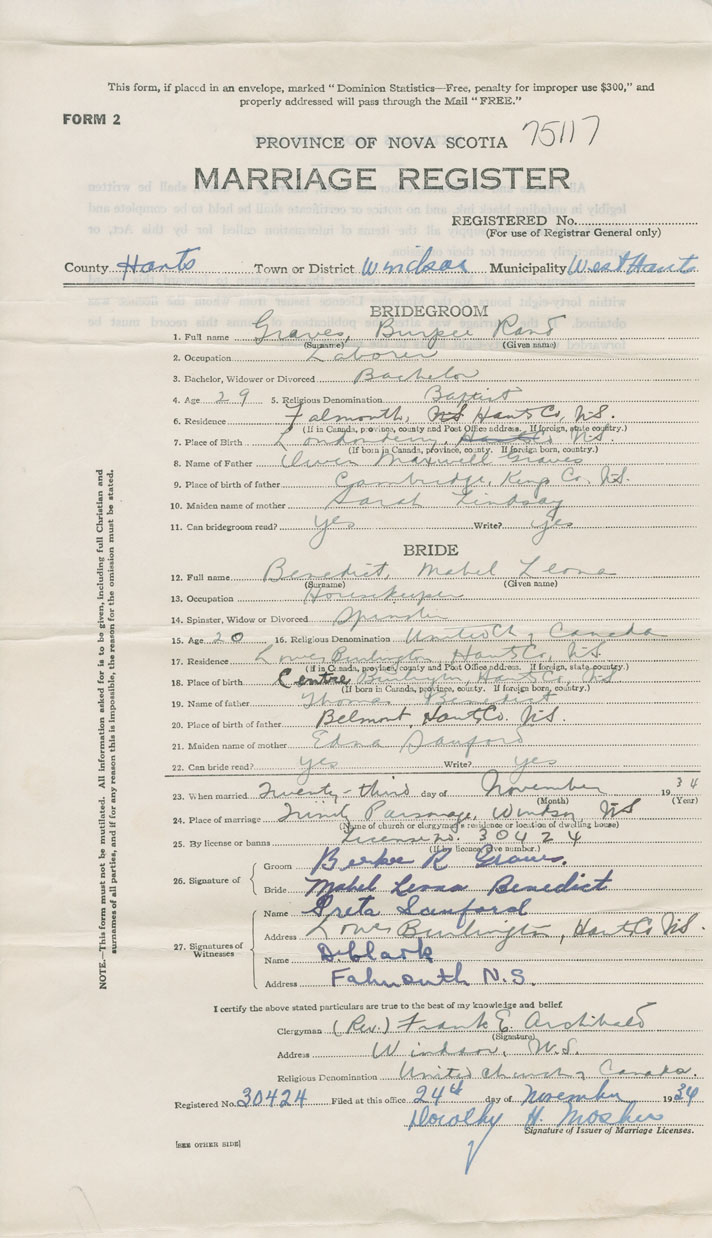 This form, if placed in an envelope, marked "Dominion Statistics—Free, penalty for improper use $300," and
properly addressed will pass through the Mail "FREE."
FORM 2
PROVINCE OF NOVA SCOTIA 75117
MARRIAGE REGISTER
REGISTERED No.
(For use of Registrar General only)
County Hants Town or District Windsor Municipality West Hants
BRIDEGROOM
1. Full name Graves, Burpee Rand
(Surname) (Given name)
2. Occupation Laborer
3. Bachelor, Widower or Divorced Bachelor
4. Age 29 5. Religious Denomination Baptist
6. Residence Falmouth, N.S. Hants Co, N.S.
(If in Canada, province, county and Post Office address. If foreign, state country.)
7. Place of Birth Londonderry, Hants Co N.S.
(If born in Canada, province, county. If foreign born, country.)
8. Name of Father Owen Maxwell Graves
9. Place of birth of father Cambridge, Kings Co, N.S.
10. Maiden name of mother Sarah Lindsay
11. Can bridegroom read? yes Write? yes
BRIDE
12. Full name Benedict, Mabel Leona
(Surname) (Given name)
13. Occupation Housekeeper
14. Spinster, Widow or Divorced Spinster
15. Age 20 16. Religious Denomination United Ch of Canada
17. Residence Lower Burlington, Hants Co, N.S.
(If in Canada, province, county and Post Office address. If foreign, state country.)
18. Place of birth Centre Burlington, Hants Co, N.S.
(If born in Canada, province, county. If foreign born, country.)
19. Name of father Thomas Benedict
20. Place of birth of father Belmont, Hants Co. N.S.
21. Maiden name of mother Edna Sanford
22. Can bride read? yes Write? yes
23. When married Twenty-third day of November 1934
(Month) (Year)
24. Place of marriage Trinity Parsonage, Windsor, N.S
(Name of church or clergyman's residence or location of dwelling house)
25. By license or banns License no. 30424
(If by license give number.)
26. Signature of
Groom Burpee R Graves.
Bride Mabel Leona Benedict
27. Signatures of Witnesses
Name Greta Sanford
Address Lower Burlington, Hants Co N.S.
Name D. Clark
Address Falmouth N.S.
I certify the above stated particulars are true to the best of my knowledge and belief.
Clergyman (Rev.) Frank E. Archibald
(Signature)
Address Windsor, N.S.
Religious Denomination United Church of Canada.
Registered No. 30424 Filed at this office 24th day of November 1934
Dorothy H. Mosher
Signature of Issuer of Marriage Licenses.
[SEE OTHER SIDE]
NOTE.—This form must not be mutilated. All information asked for is to be given, including full Christian and
surnames of all parties, and if for any reason this is impossible, the reason for the omission must be stated.